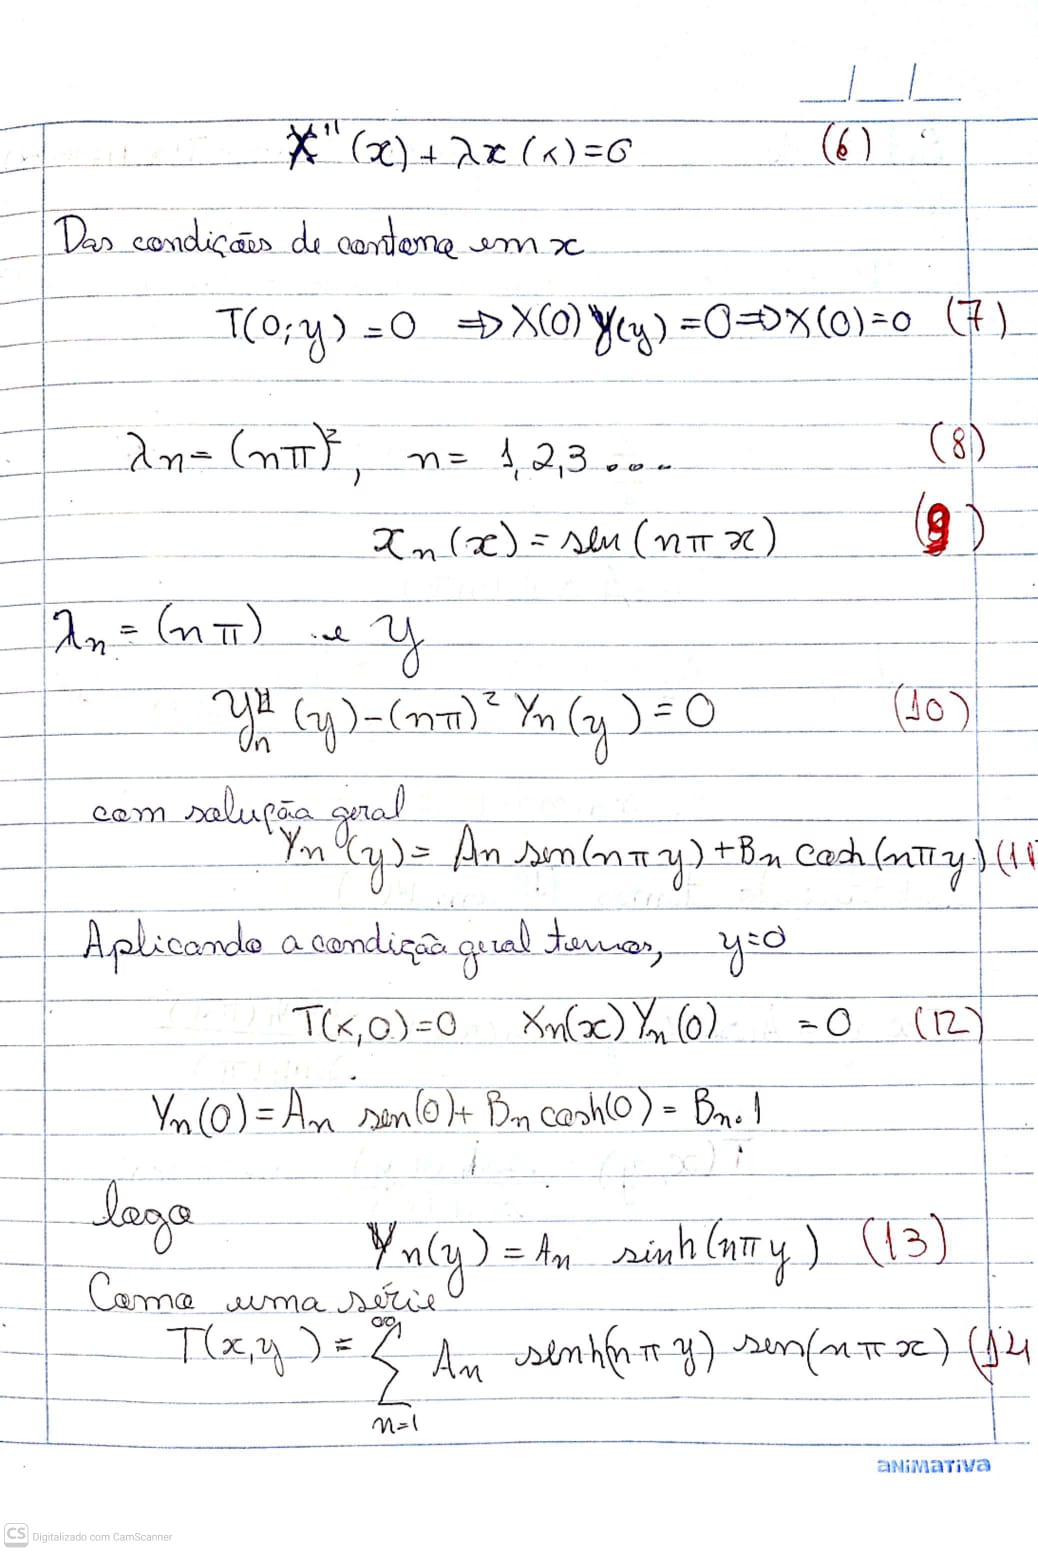 X''(x) + λx(x) = 0 (6)
Das condições de contorno em x
T(0;y) = 0 ⇒ X(0) Y(y) = 0 ⇒ X(0) = 0 (7)
λn = (nπ)², n = 1,2,3 .... (8)
xn(x) = sen(nπx) (9)
λn = (nπ) e y
yn''(y) - (nπ)² Yn(y) = 0 (10)
com solução geral
Yn(y) = An sen(nπy) + Bn cosh(nπy) (11
Aplicando a condição geral temos, y=0
T(x,0) = 0 Xn(x) Yn(0) = 0 (12)
Yn(0) = An sen(0) + Bn cosh(0) = Bn.1
logo
Yn(y) = An sinh(nπy) (13)
Como uma série
T(x,y) = ∞ ∑ n=1 An senh(nπy) sen(nπx) (14
aNiMaTiVa
CS Digitalizado com CamScanner